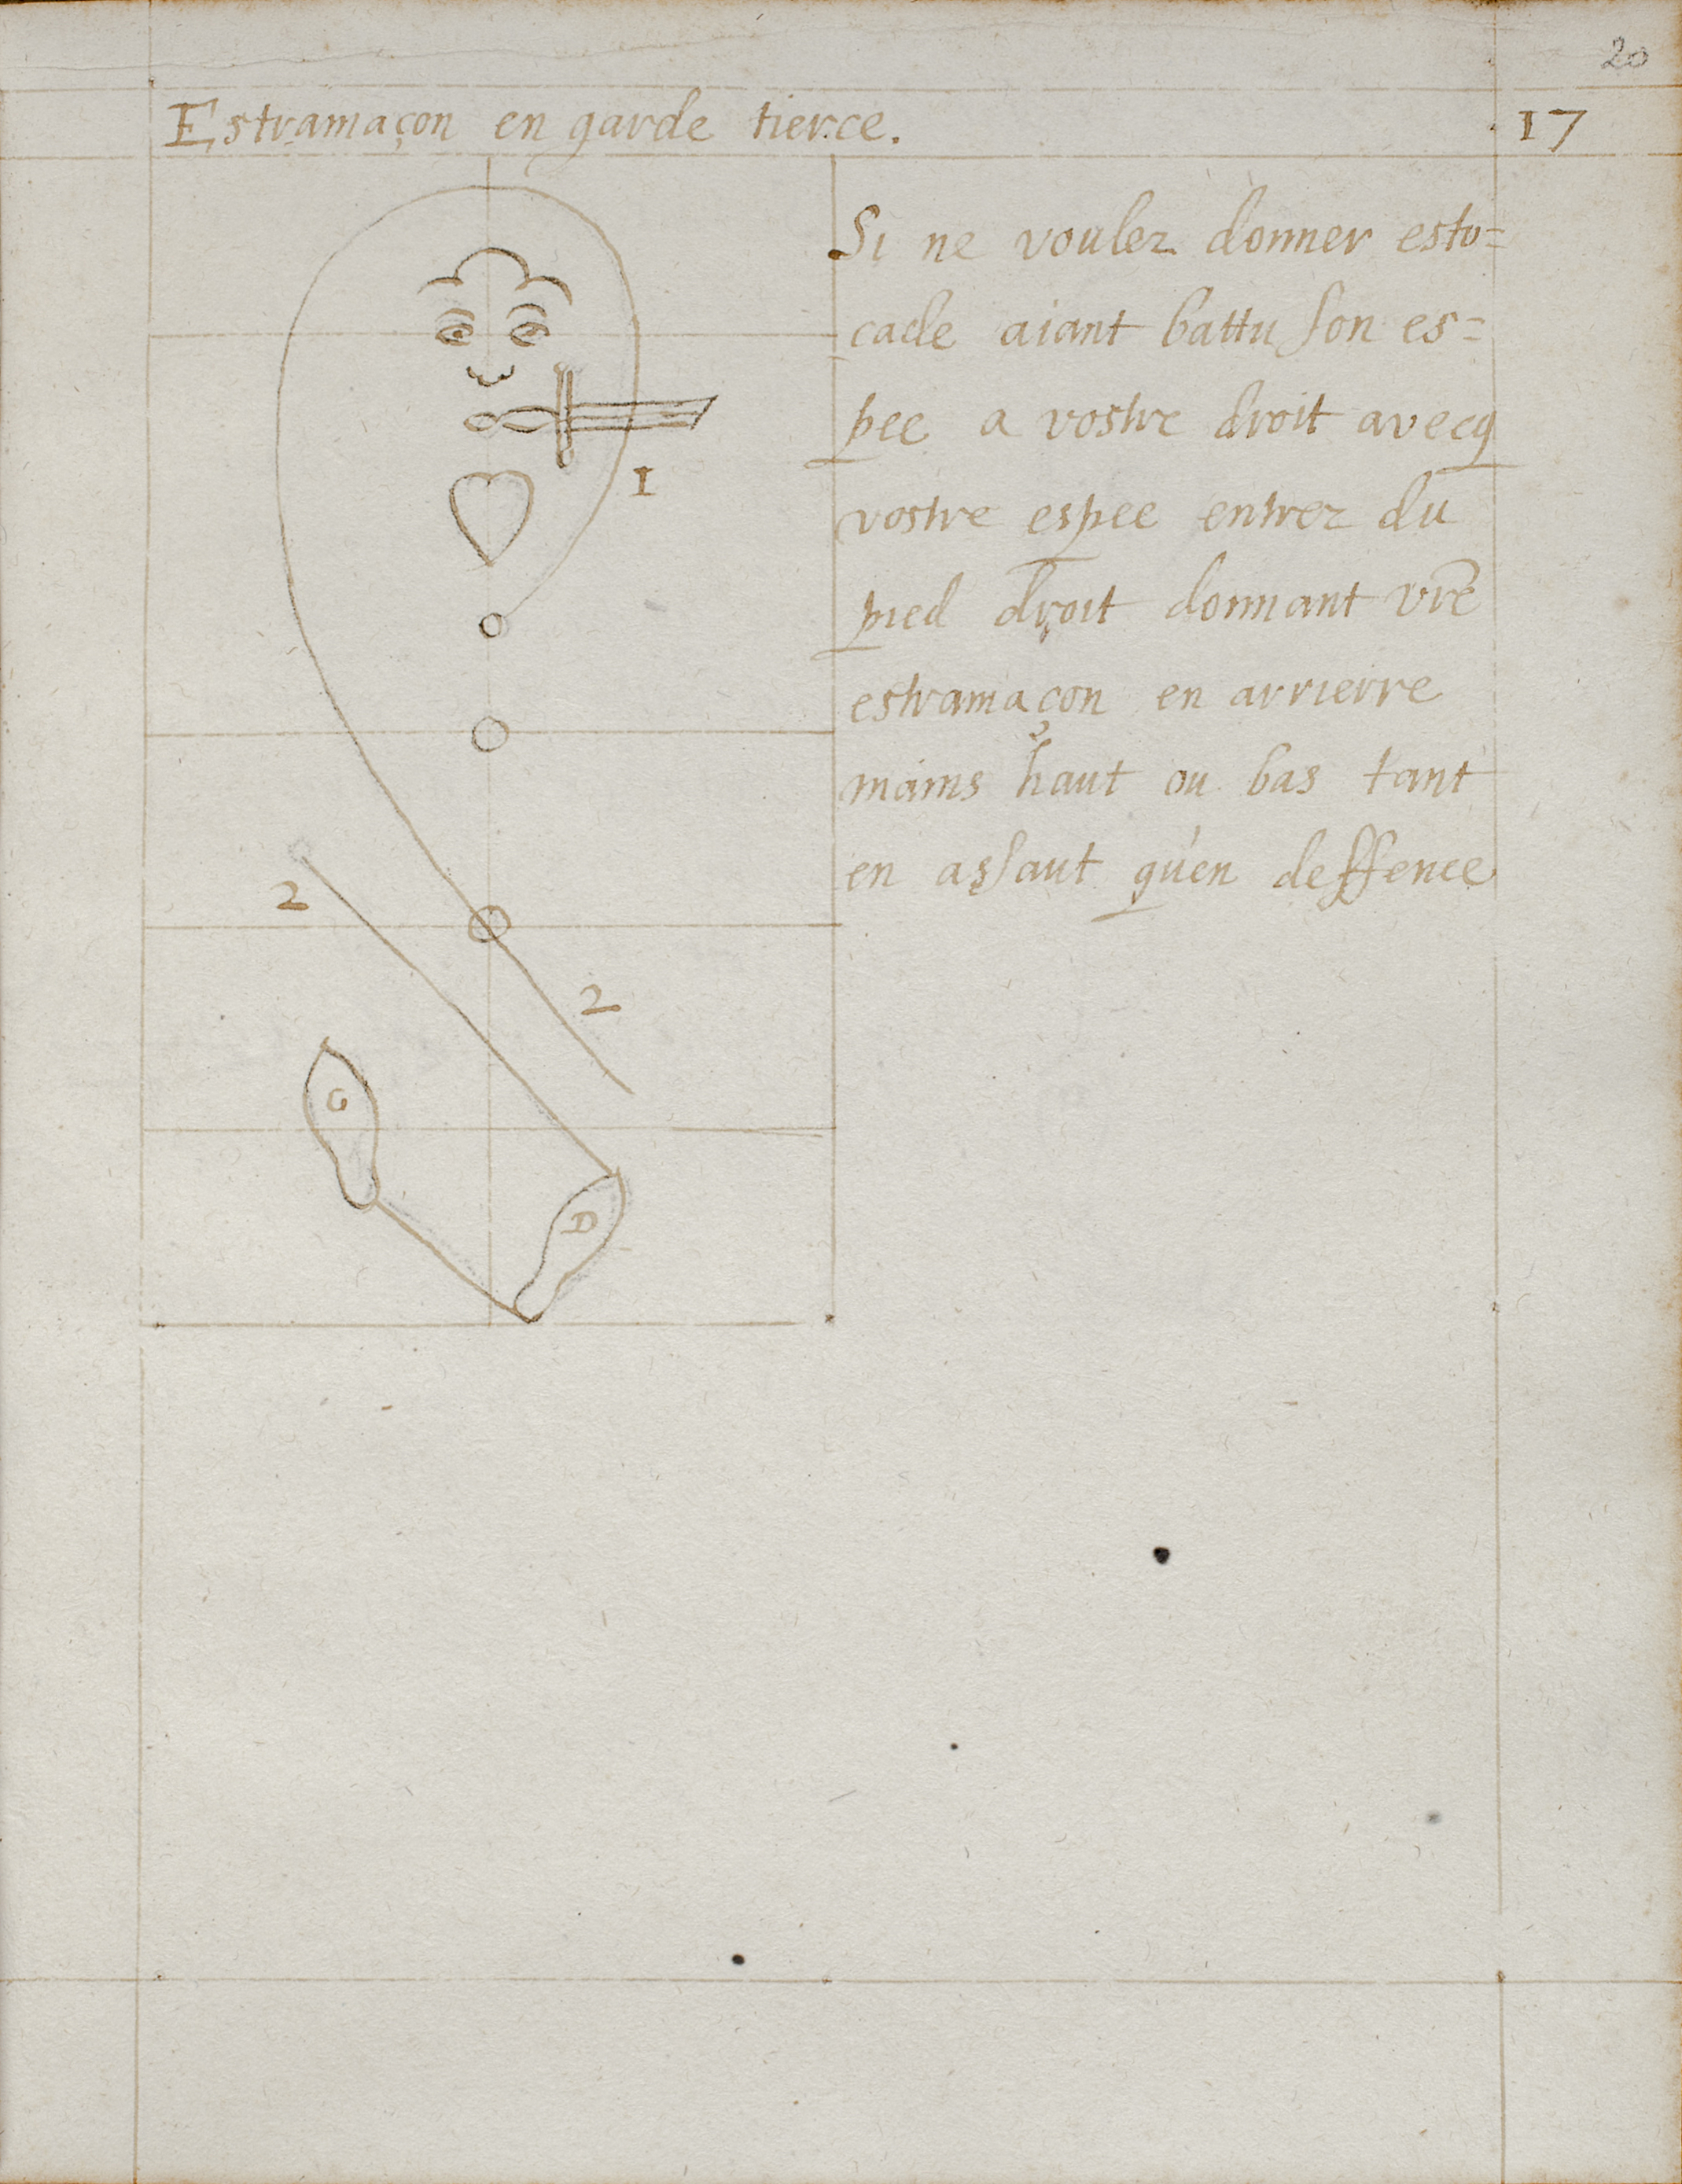 20
Estramaçon en garde tierce. 17
Si ne voulez donner esto=
cade aiant battu son es=
pee a vostre droit avecq
vostre espee entrez du
pied droit donnant vr̃e
estramaçon en arrierre
mains haut ou bas tant
en assaut qu'en deffence
1
2
2
G
D